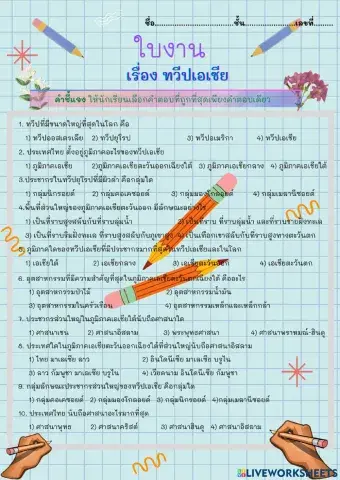 ชื่อ..............................ชั้น....................เลขที่..........
ใบงาน
เรื่อง ทวีปเอเชีย
คำชี้แจง ให้นักเรียนเลือกคำตอบที่ถูกที่สุดเพียงคำตอบเดียว
1. ทวีปที่มีขนาดใหญ่ที่สุดในโลก คือ
1) ทวีปออสเตรเลีย 2) ทวีปยุโรป 3) ทวีปแอฟริกา 4) ทวีปเอเชีย
2. ประเทศไทย ตั้งอยู่ภูมิภาคอะไรของทวีปเอเชีย
1) ภูมิภาคเอเชีย 2)ภูมิภาคเอเชียตะวันออกเฉียงใต้ 3) ภูมิภาคเอเชียกลาง 4) ภูมิภาคเอเชียใต้
3.ประชากรในทวีปยุโรปที่มีผิวดำ คือกลุ่มใด
1) กลุ่มนิกรอยด์ 2) กลุ่มคอเคซอยด์ 3) กลุ่มมองโกลอยด์ 4) กลุ่มเมลานิซอยด์
4.พื้นที่ส่วนใหญ่ของภูมิภาคเอเชียตะวันออก มีลักษณะอย่างไร
1) เป็นที่ราบสูงสลับกับที่ราบลุ่มน้ำ 2) เป็นที่ราบ ที่ราบลุ่มน้ำ และที่ราบชายฝั่งทะเล
3) เป็นที่ราบริมฝั่งทะเล ที่ราบสูงสลับกับภูเขาสูง 4) เป็นเทือกเขาสลับกับที่ราบสูงทางตะวันตก
5. ภูมิภาคใดของทวีปเอเชียที่มีประชากรมากที่สุดในทวีปเอเชียและในโลก
1) เอเชียใต้ 2) เอเชียกลาง 3) เอเชียตะวันออก 4) เอเชียตะวันตก
6. อุตสาหกรรมที่มีความสำคัญที่สุดในภูมิภาคเอเชียตะวันตกเฉียงใต้ คืออะไร
1) อุตสาหกรรมป่าไม้ 2) อุตสาหกรรมน้ำมัน
3) อุตสาหกรรมในครัวเรือน 4) อุตสาหกรรมเหล็กและเหล็กกล้า
7. ประชากรส่วนใหญ่ในภูมิภาคเอเชียใต้นับถือศาสนาใด
1) ศาสนาเชน 2) ศาสนาอิสลาม 3) พระพุทธศาสนา 4) ศาสนาพราหมณ์-ฮินดู
8. ประเทศใดในภูมิภาคเอเชียตะวันออกเฉียงใต้ที่ส่วนใหญ่นับถือศาสนาอิสลาม
1) ไทย มาเลเซีย ลาว 2) อินโดนีเซีย มาเลเซีย บรูไน
3) ลาว กัมพูชา มาเลเซีย บรูไน 4) เวียดนาม อินโดนีเซีย กัมพูชา
9. กลุ่มลักษณะประชากรส่วนใหญ่ของทวีปเอเชีย คือกลุ่มใด
1) กลุ่มคอเคซอยด์ 2) กลุ่มมองโกลอยด์ 3) กลุ่มนิกรอยด์ 4)กลุ่มเมลานิซอยด์
10. ประเทศไทย นับถือศาสนาอะไรมากที่สุด
1) ศาสนาพุทธ 2) ศาสนาคริสต์ 3) ศาสนาฮินดู 4) ศาสนาอิสลาม
LIVEWORKSHEETS